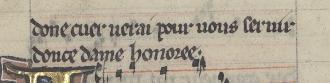 donc cuer uerai pour uous seruir
douce dame honoree.